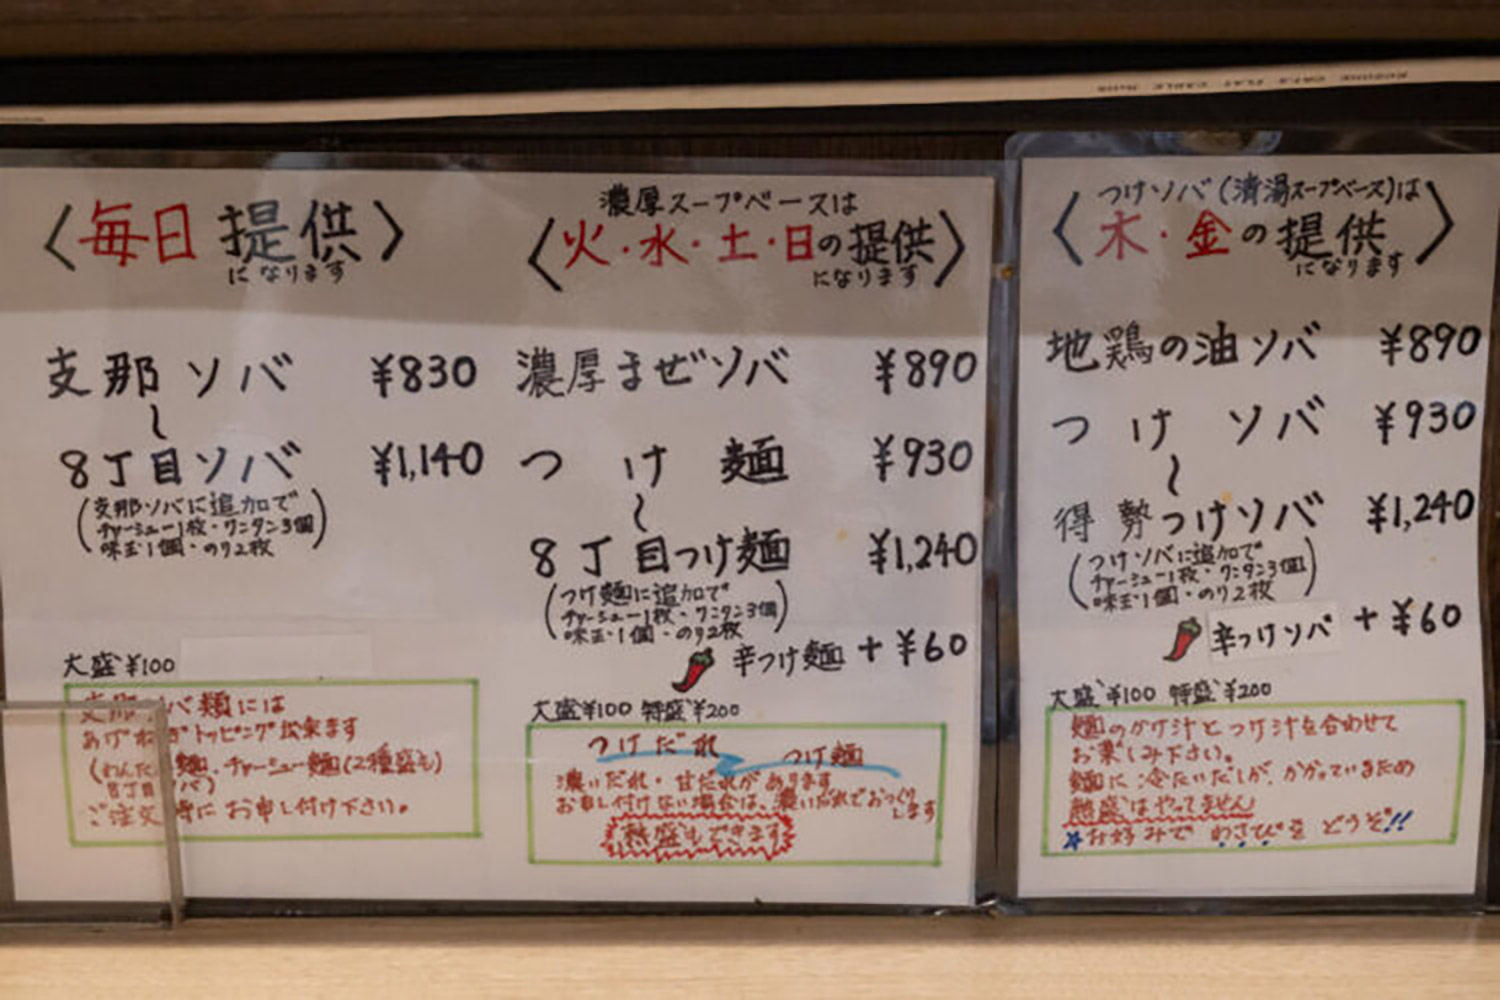 〈毎日提供〉
になります
支那ソバ ¥830
〜
8丁目ソバ ¥1,140
(支那ソバに追加で
チャーシュー1枚・ワンタン3個
味玉1個・のり2枚)
大盛¥100
支那ソバ麺には
あげねぎトッピング出来ます
麺、チャーシュー麺(2種盛も)
8丁目 バ)
ご注文 時にお申し付け下さい。
濃厚スープベースは
〈火・水・土・日の提供〉
になります
濃厚まぜソバ ¥890
つけ麺 ¥930
〜
8丁目つけ麺 ¥1,240
(つけ麺に追加で
チャーシュー1枚・ワンタン3個
味玉・1個・のり2枚)
辛つけ麺 +¥60
大盛¥100 特盛¥200
つけだれ
つけ麺
濃いだれ・甘だれがあります
お申し付けない場合は、濃いだれでおつくり
します
熱盛もできます
つけソバ(清湯スープベース)は
〈木・金の提供〉
になります
地鶏の油ソバ ¥890
つけソバ ¥930
〜
得勢つけソバ ¥1,240
(つけソバに追加で
チャーシュー1枚・ワンタン3個
味玉1個・のり2枚)
辛つけソバ +¥60
大盛¥100 特盛¥200
麺のかけ汁とつけ汁を合わせて
お楽しみ下さい。
麺に冷たいだしが、かかっているため
熱盛はやってません
★お好みでわさびをどうぞ!!